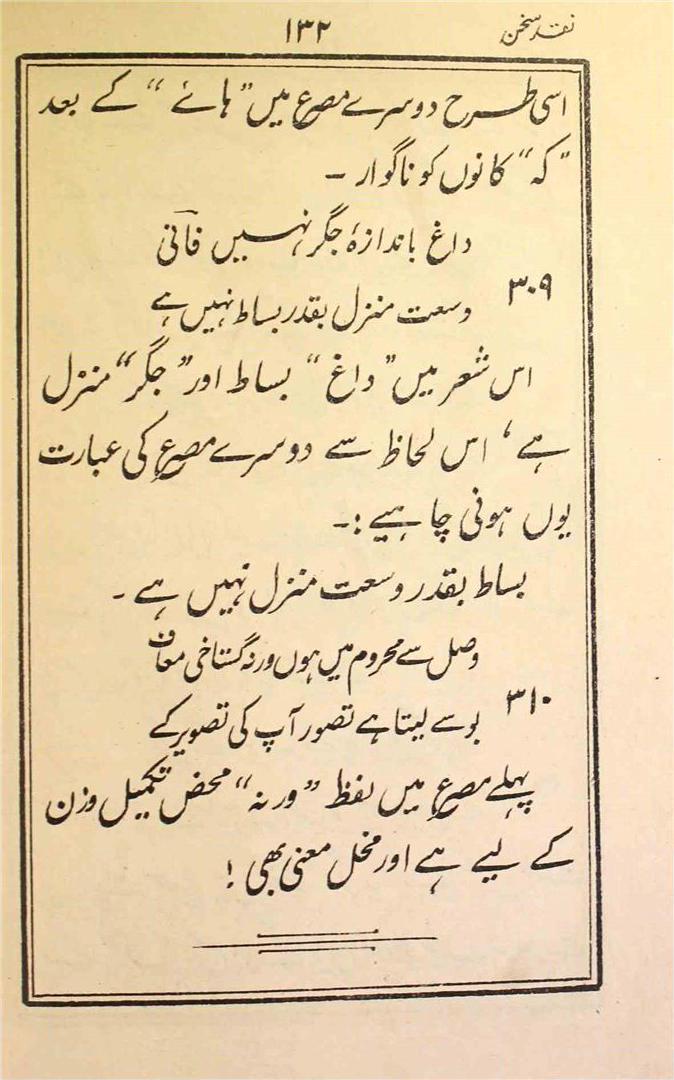 نقد سخن
۱۳۲
اسی طرح دوسرے مصرع میں ”ہائے“ کے بعد
”کہ“ کانوں کو ناگوار ۔
داغ باندازۂ جگر نہیں فانی
۳۰۹
وسعت منزل بقدر بساط نہیں ہے
اس شعر میں ”داغ“ بساط اور ”جگر“ منزل
ہے ، اس لحاظ سے دوسرے مصرع کی عبارت
یوں ہونی چاہیے :۔
بساط بقدر وسعت منزل نہیں ہے ۔
وصل سے محروم میں ہوں ورنہ گستاخی معاف
۳۱۰
بوسے لیتا ہے تصور آپ کی تصویر کے
پہلے مصرع میں لفظ ”ورنہ“ محض تکمیل وزن
کے لیے ہے اور مخل معنی بھی !